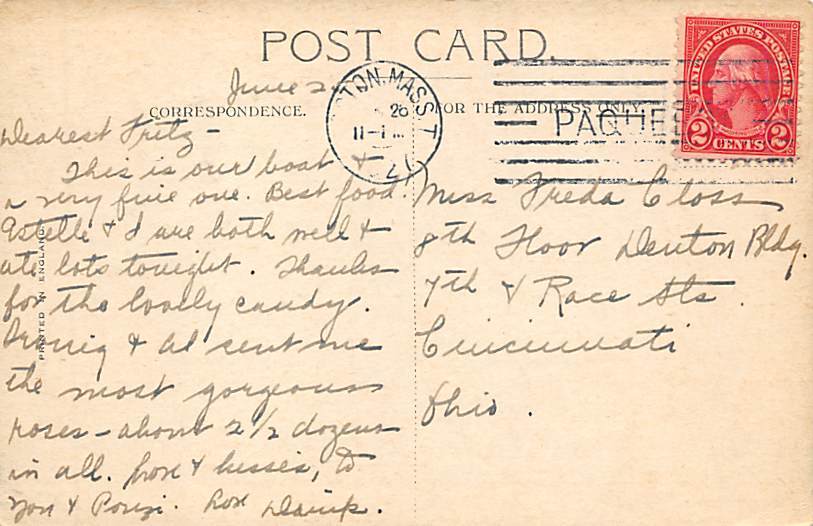 POST CARD.
CORRESPONDENCE.
FOR THE ADDRESS ONLY.
June 2
TON, MASS
26
11-1
PAQUE
UNITED STATES POSTAGE
2 CENTS 2
PRINTED IN ENGLAND
Dearest Fritz -
This is our boat &
a very fine one. Best food.
Estelle & I are both well &
ate lots tonight. Thanks
for the lovely candy.
& Al sent me
the most gorgeous
roses - about 2 1/2 dozens
in all. Love & kisses, to
you &
Love
Miss Freda Closs
8th Floor Denton Bldg.
7th & Race Sts.
Cincinnati
Ohio.